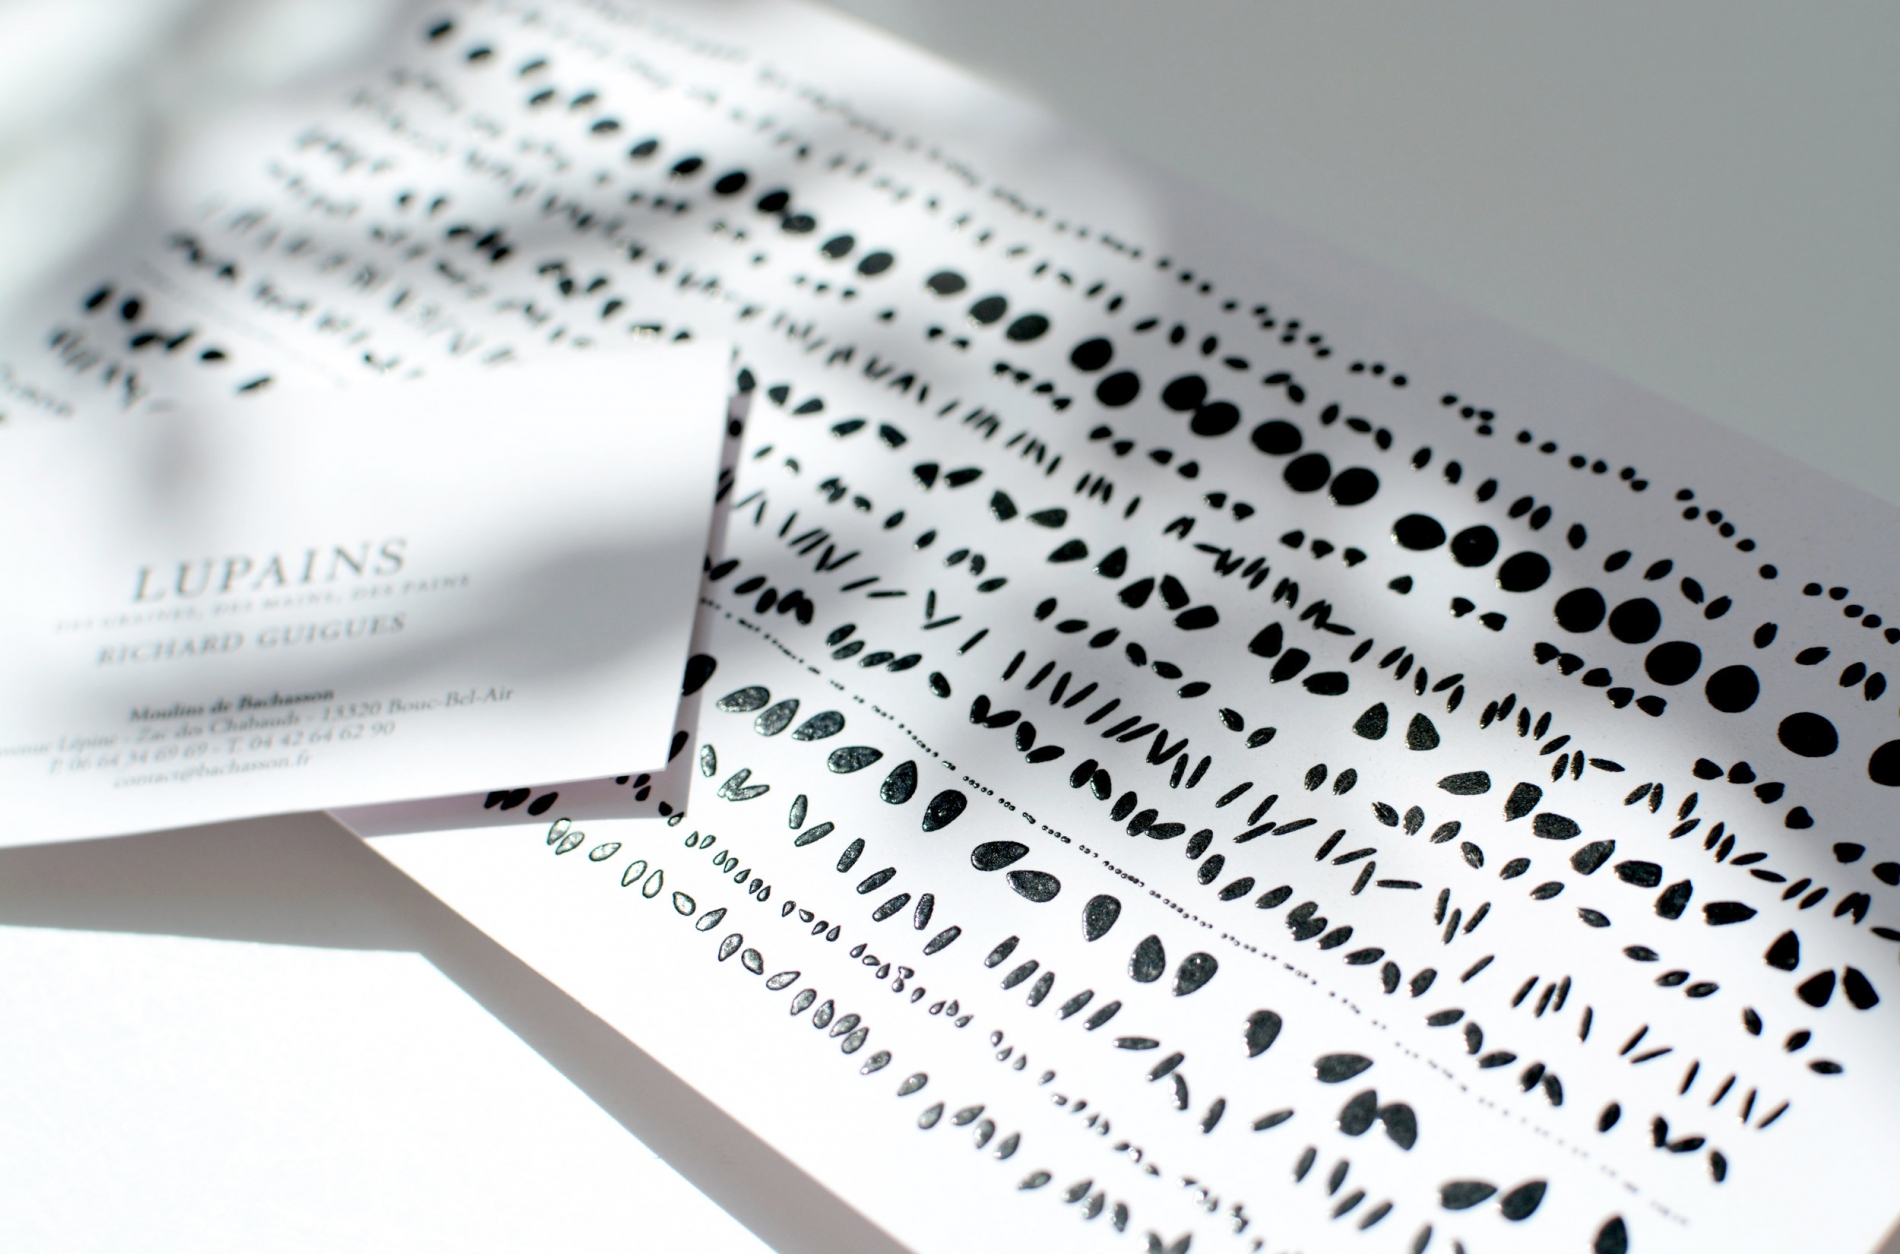 LUPAINS
DES GRAINES, DES MAINS, DES PAINS
RICHARD GUIGUES
Moulins de Bachasson
avenue Lépine - Zac des Chabauds - 13320 Bouc-Bel-Air
P. 06 64 34 69 69 - T. 04 42 64 62 90
contact@bachasson.fr